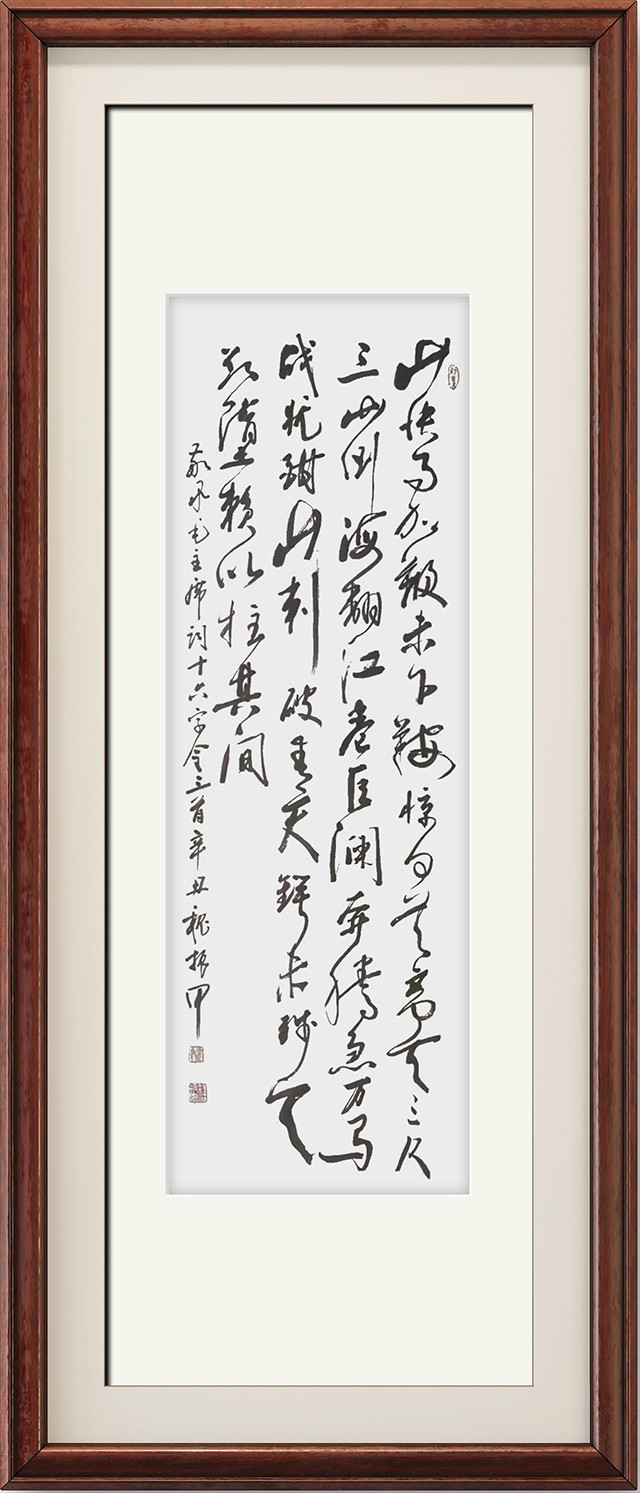 山快马加鞭未下鞍惊回首离天三尺
三山倒海翻江卷巨澜奔腾急万马
战犹酣山刺破青天锷未残天
欲堕赖以拄其间
敬录毛主席词十六字令三首辛丑振甲